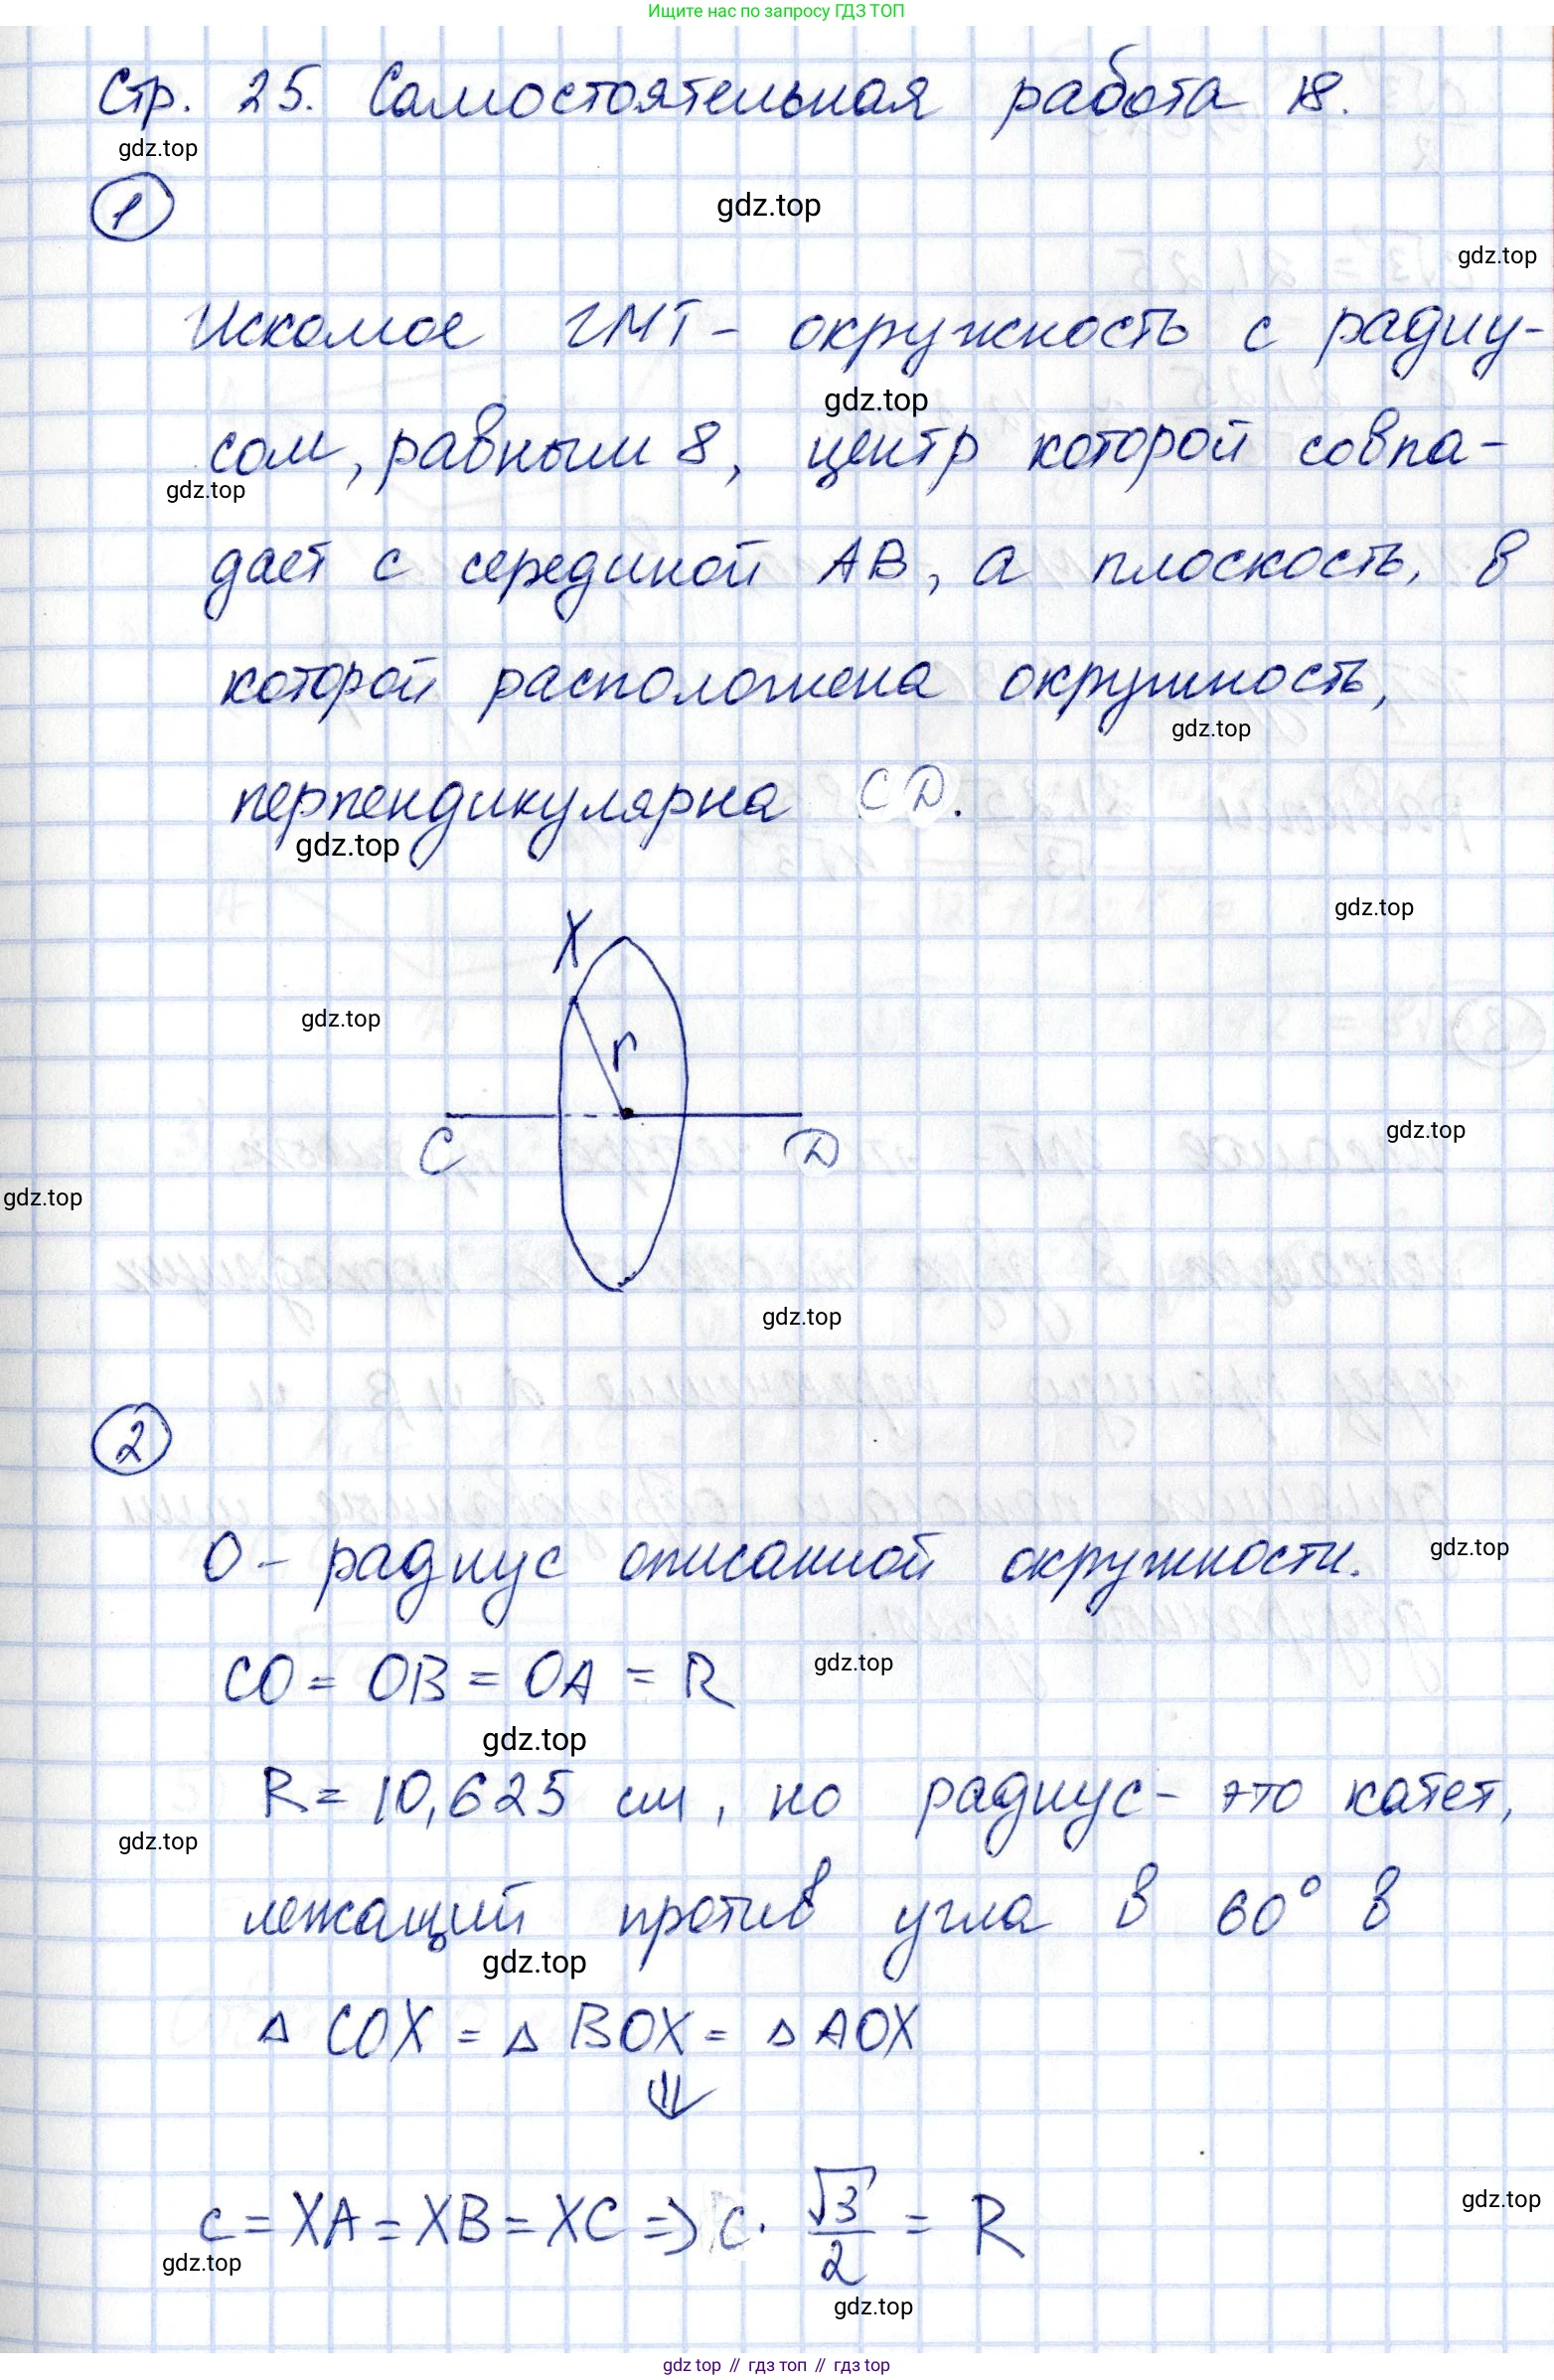 Ищите нас по запросу ГДЗ ТОП
Стр. 25. Самостоятельная работа 18.
gdz.top
1
gdz.top
gdz.top
Искомое ГМТ - окружность с радиу-
gdz.top
сом, равным 8, центр которой совпа-
gdz.top
дает с серединой AB, а плоскость, в
которой расположена окружность,
gdz.top
перпендикулярна CD.
gdz.top
gdz.top
X
gdz.top
r
gdz.top
C D
gdz.top
gdz.top
2
O - радиус описанной окружности.
gdz.top
CO = OB = OA = R
gdz.top
gdz.top
R = 10,625 см, но радиус - это катет,
gdz.top
лежащий против угла в 60° в
gdz.top
Δ COX = Δ BOX = Δ AOX
⇓
c = XA = XB = XC => c · √3/2 = R
gdz.top
gdz.top
gdz.top
gdz top // гдз топ // гдз top